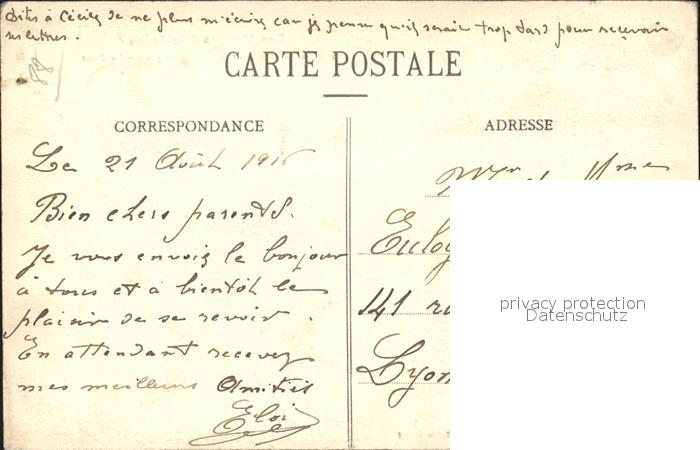 Dites à Cécile de ne plus m'écrire car je pense qu'il serait trop tard pour recevoir
ses lettres.
88
CARTE POSTALE
CORRESPONDANCE
ADRESSE
Le 21 Août 191
Bien chers parents.
Je vous envoie le bonjour
à tous et à bientôt le
plaisir de se revoir.
En attendant recevez
mes meilleurs Amitiés
Eloi
Mr Mme
141
Lyon
privacy protection
Datenschutz